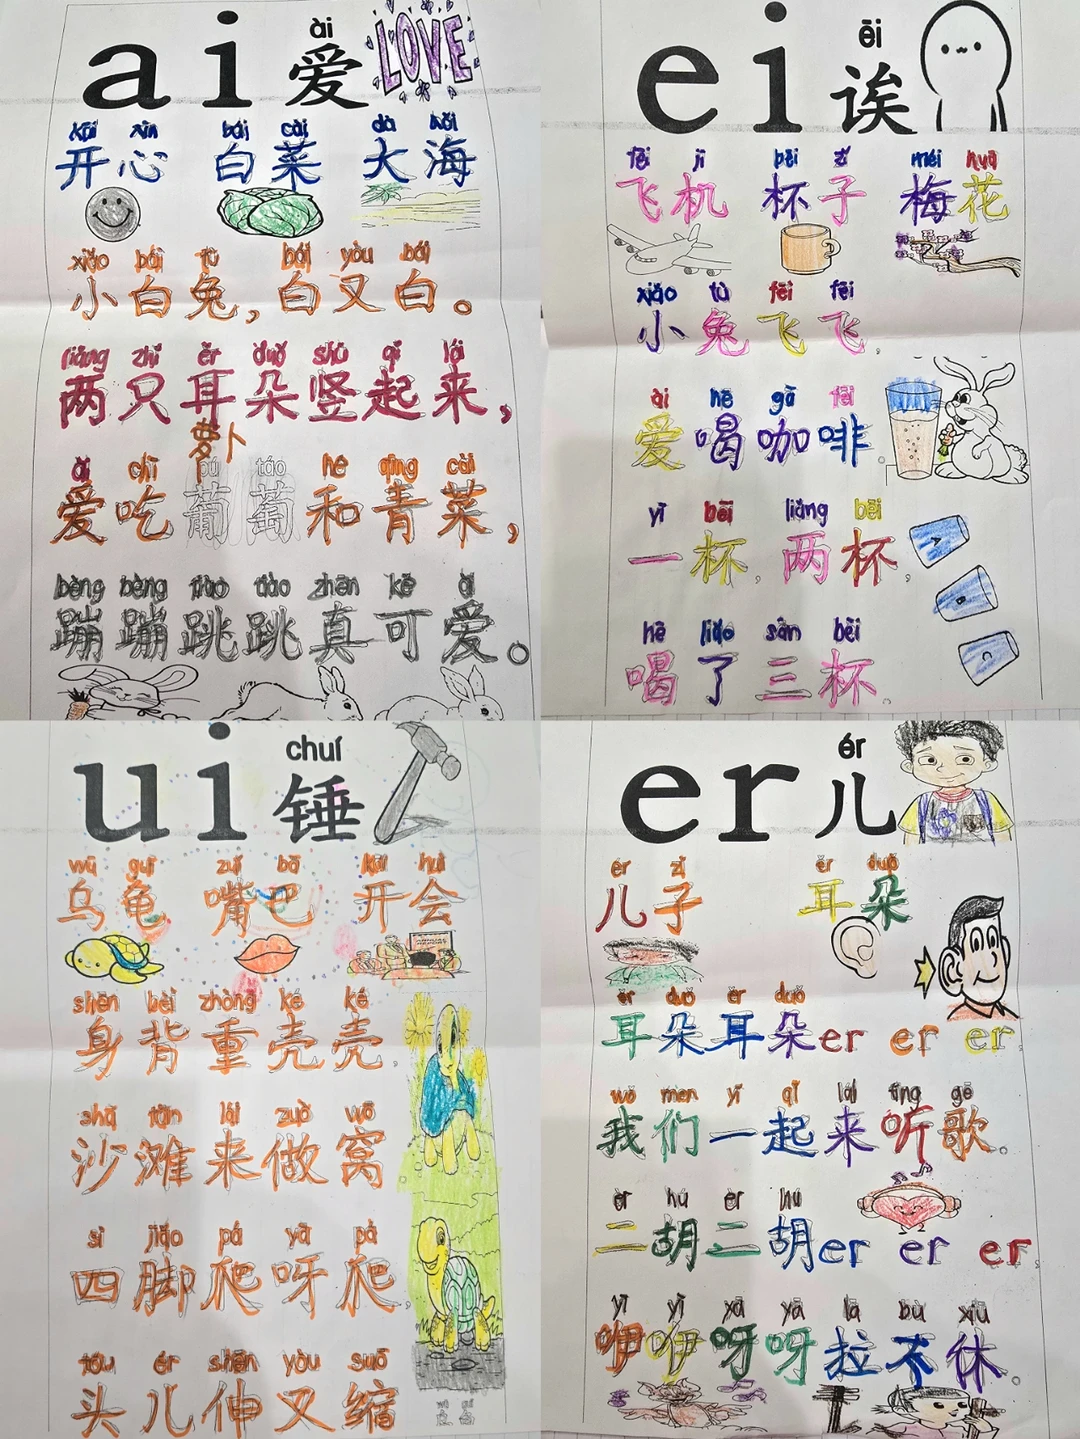 ài
ai 爱 LOVE
kāi xīn bái cài dà hǎi
开心 白菜 大海
xiǎo bái tù bái yòu bái
小白兔,白又白。
liǎng zhī ěr duǒ shù qǐ lái
两只耳朵竖起来,
萝卜
ài chī pú táo hé qīng cài
爱吃葡萄和青菜,
bèng bèng tiào tiào zhēn kě ài
蹦蹦跳跳真可爱。
ēi
ei 诶
fēi jī bēi zi méi huā
飞机 杯子 梅花
xiǎo tù fēi fēi
小兔飞飞,
ài hē gā fēi
爱喝咖啡。
yī bēi liǎng bēi
一杯,两杯,
hē liǎo sān bēi
喝了三杯。
chuí
ui 锤
wū guī zuǐ bā kāi huì
乌龟 嘴巴 开会
shēn bèi zhòng ké ké
身背重壳壳
shā tān lái zuò wō
沙滩来做窝
sì jiǎo pá yā pá
四脚爬呀爬,
tóu ér shēn yòu suō
头儿伸又缩
ér
er 儿
ér zi ěr duǒ
儿子 耳朵
ěr duǒ ěr duǒ
耳朵耳朵er er er,
wǒ men yī qǐ lái tīng gē
我们一起来听歌。
èr hú èr hú
二胡二胡er er er,
yī yī yā yā lā bù xiū
咿咿呀呀拉不休。